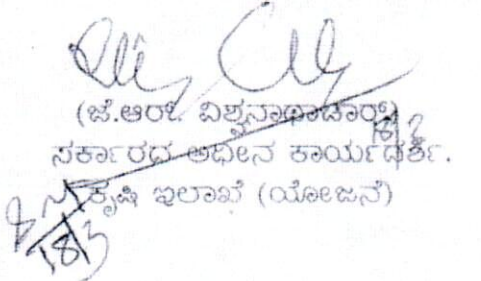 (ಜೆ.ಆರ್. ವಿಶ್ವನಾಥಾಚಾರ್)
ಸರ್ಕಾರದ ಅಧೀನ ಕಾರ್ಯದರ್ಶಿ.
ಕೃಷಿ ಇಲಾಖೆ (ಯೋಜನೆ)
18/3